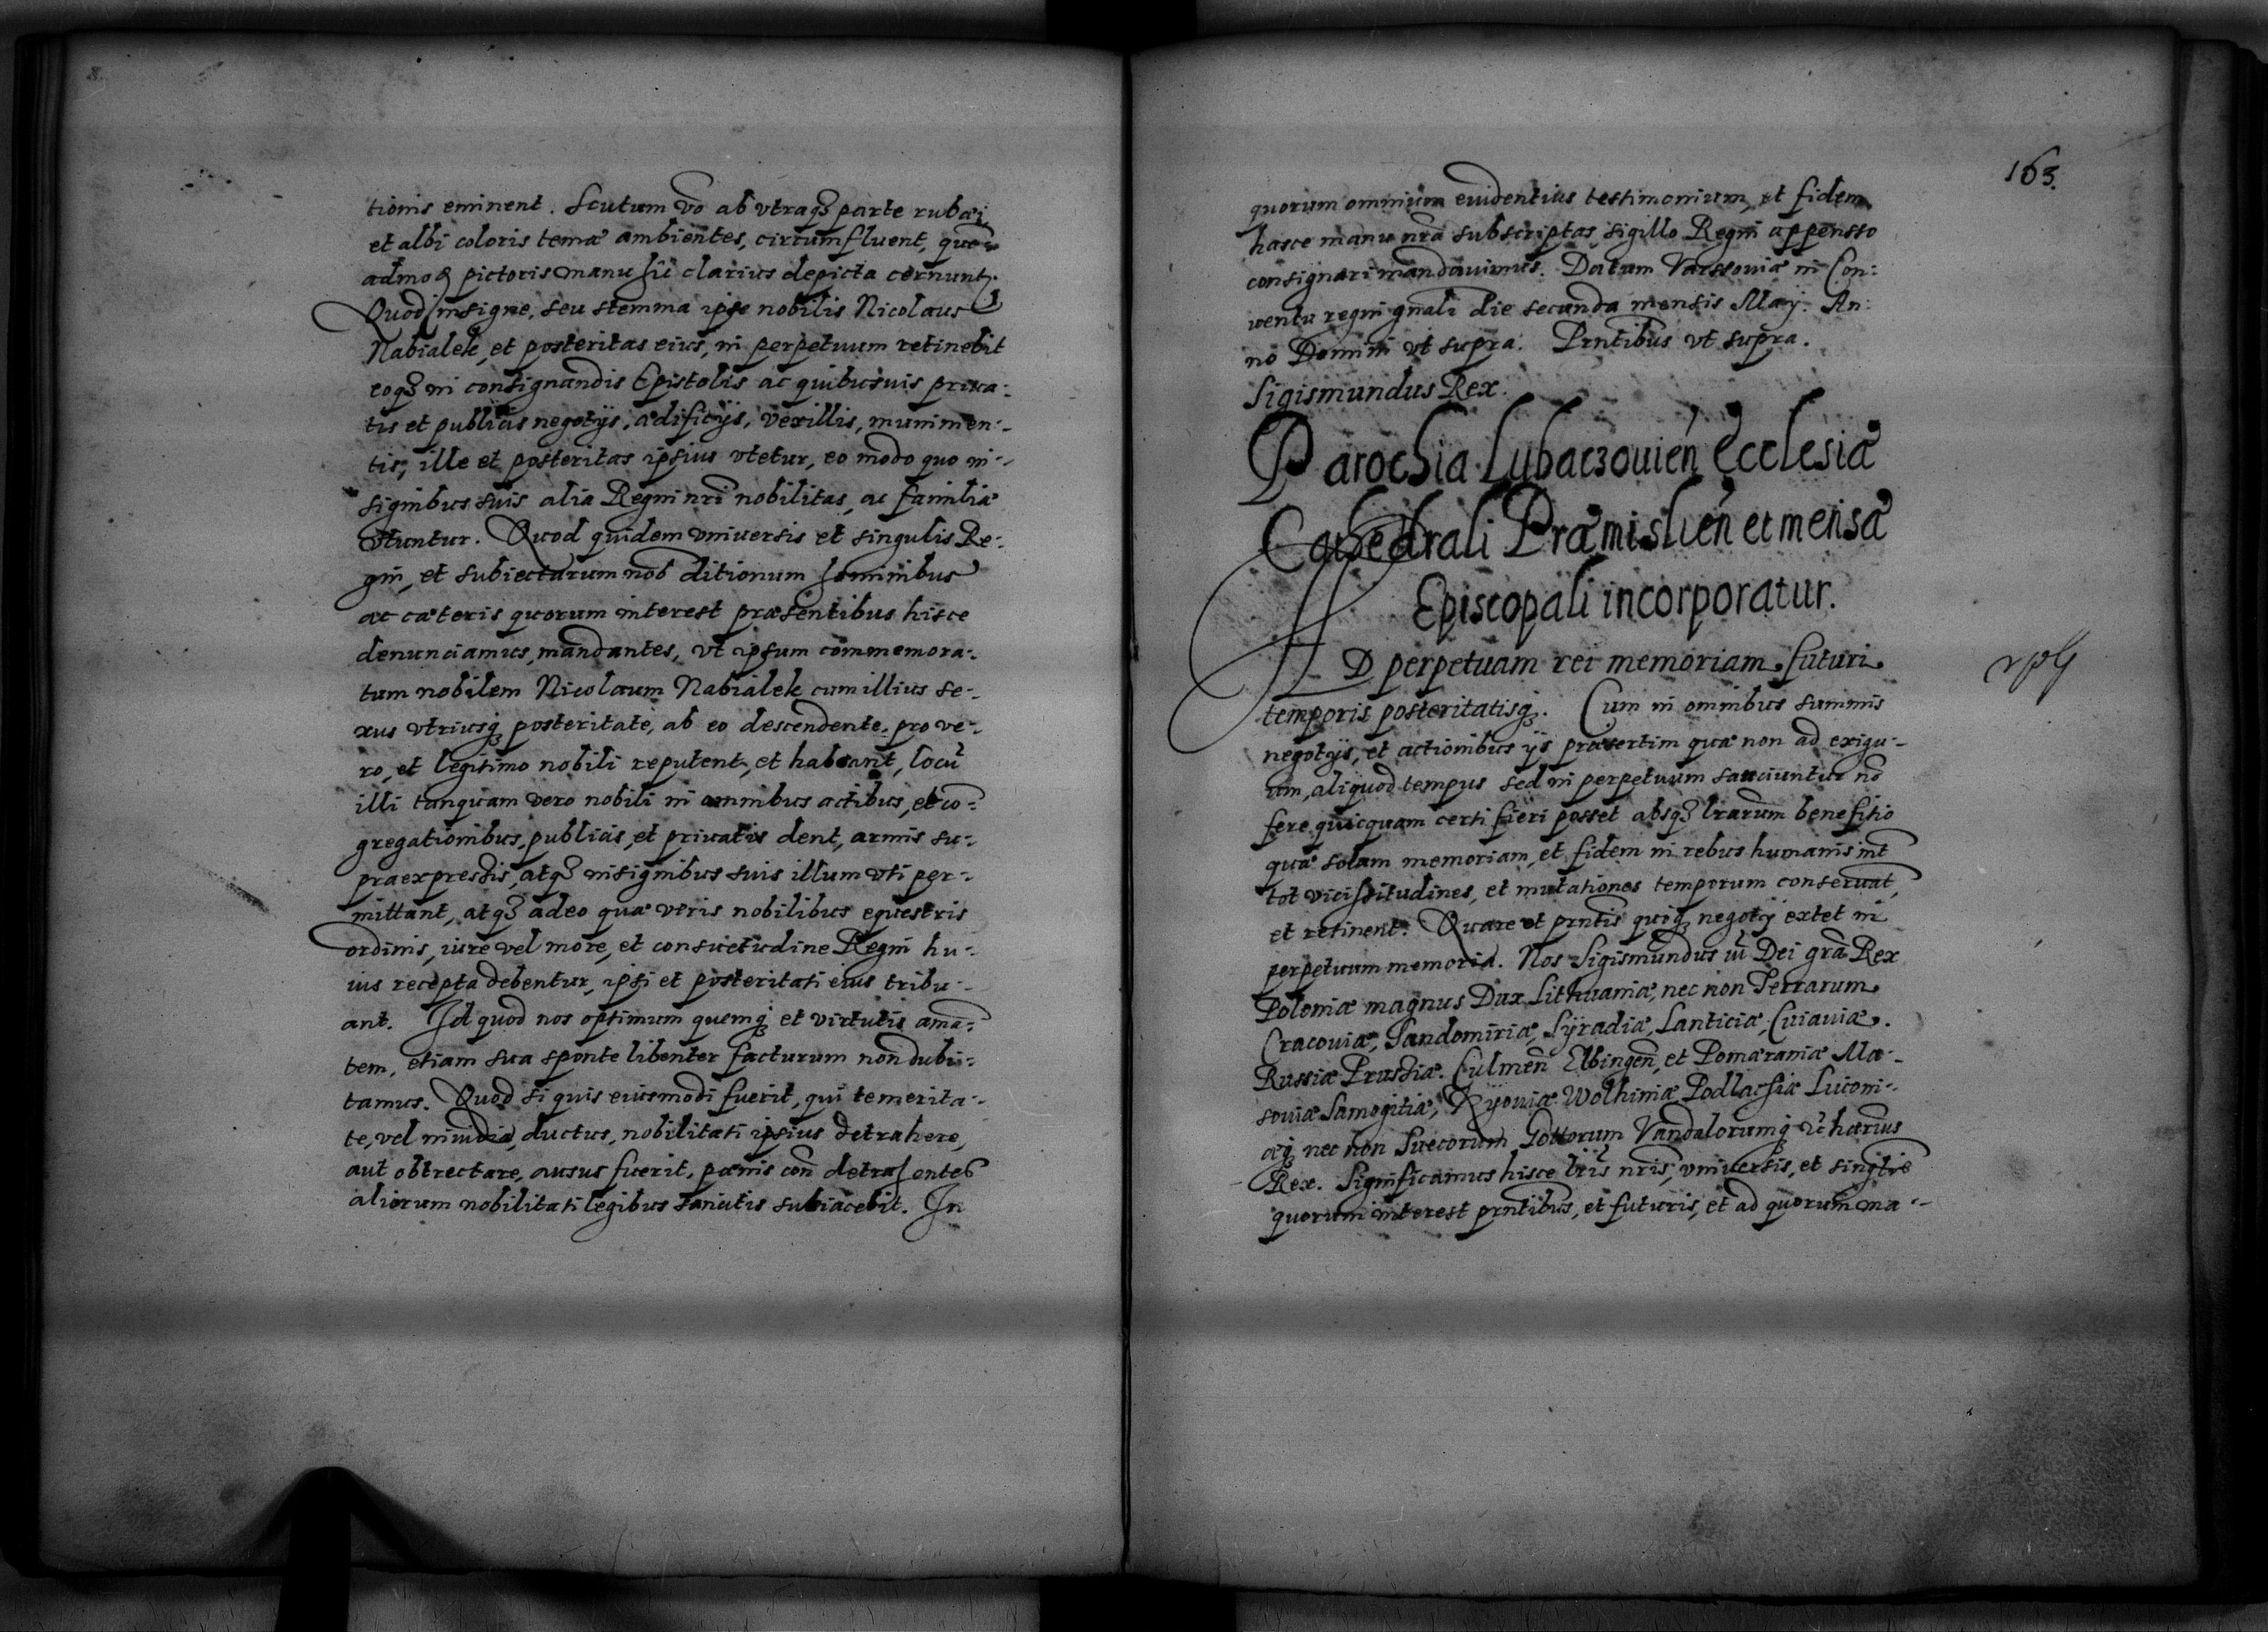 tionis eminent. Scutum vō ab vtraqȝ parte rubæi
et albi coloris temæ ambientes, circumfluent, quē-
admoꝗ pictoris manu hic clarius depicta cernunt.
Quod insigne, seu stemma ipse nobilis Nicolaus
Nabialek, et posteritas eius, in perpetuum retinebit
eoqȝ in consignandis Epistolis ac quibusuis priua-
tis et publicis negotÿs, ædificÿs, vexillis, munimen-
tis, ille et posteritas ipsius vtetur, eo modo quo in-
signibus suis alia Regni nrī nobilitas, ac familiæ
vtuntur. Quod quidem vniuersis et singulis Re-
gni, et subiectarum nob ditionum hominibus
ac cæteris quorum interest præsentibus hisce
denunciamus, mandantes, vt ipsum commemora-
tum nobilem Nicolaum Nabialek cum illius se-
xus vtriusqȝ posteritate, ab eo descendente, pro ve-
ro, et legitimo nobili reputent, et habeant, locū
illi tanquam vero nobili in omnibus actibus, et cō-
gregationibus, publicis, et priuatis dent, armis su-
praexpressis, atqȝ insignibus suis illum vti per-
mittant, atqȝ adeo quæ veris nobilibus equestris
ordinis, iure vel more, et consuetudine Regni hu-
ius recepta debentur, ipsi et posteritati eius tribu-
ant. Id quod nos optimum quemqȝ et virtutis amā-
tem, etiam sua sponte libenter facturum non dubi-
tamus. Quod si quis eiusmodi fuerit, qui temerita-
te, vel inuidia, ductus, nobilitati ipsius detrahere,
aut obtrectare, ausus fuerit, pænis con detrahentes
aliorum nobilitati legibus sancitis subiacebit. In
163.
quorum omnium euidentius testimonium, et fidem
hasce manu nrā subscriptas, sigillo Regni appensso
consignari mandauimus. Datum Varssouiæ in Con-
uentu regni gnāli die secunda mensis Maÿ. An-
no Domini vt supra. Prntibus vt supra.
Sigismundus Rex.
Parochia Lubaczouień Ecclesiæ
Cathedrali Præmislień et mensæ
Episcopali incorporatur.
AD perpetuam rei memoriam futuri
temporis posteritatisqȝ. Cum in omnibus summis
negotÿs, et actionibus ÿs præsertim quæ non ad exigu-
um, aliquod tempus sed in perpetuum sanciuntur nō
fere quicquam certi fieri posset absqȝ lrārum benefitio
quæ solam memoriam, et fidem in rebus humanis int
tot vicissitudines, et mutationes temporum conseruāt,
et retinent. Quare vt prntis quoqȝ negotÿ extet in
perpetuum memoria. Nos Sigismundus iii Dei grā Rex
Poloniæ magnus Dux Lithuaniæ, nec non Terrarum
Cracouiæ, Sandomiriæ, Sÿradiæ, Lanticiæ, Cuiauiæ.
Russiæ Prussiæ. Culmeñ Elbingeñ, et Pomæraniæ Ma-
souiæ Samogitiæ, Kÿouiæ Wolhiniæ Podlachiæ Liuoni-
æqȝ nec non Suecorum Gottorum Vandalorumqȝ &c hærius
Rex. Significamus hisce lrīs nrīs, vniuersis, et singlis
quorum interest prntibus, et futuris, et ad quorum ma-